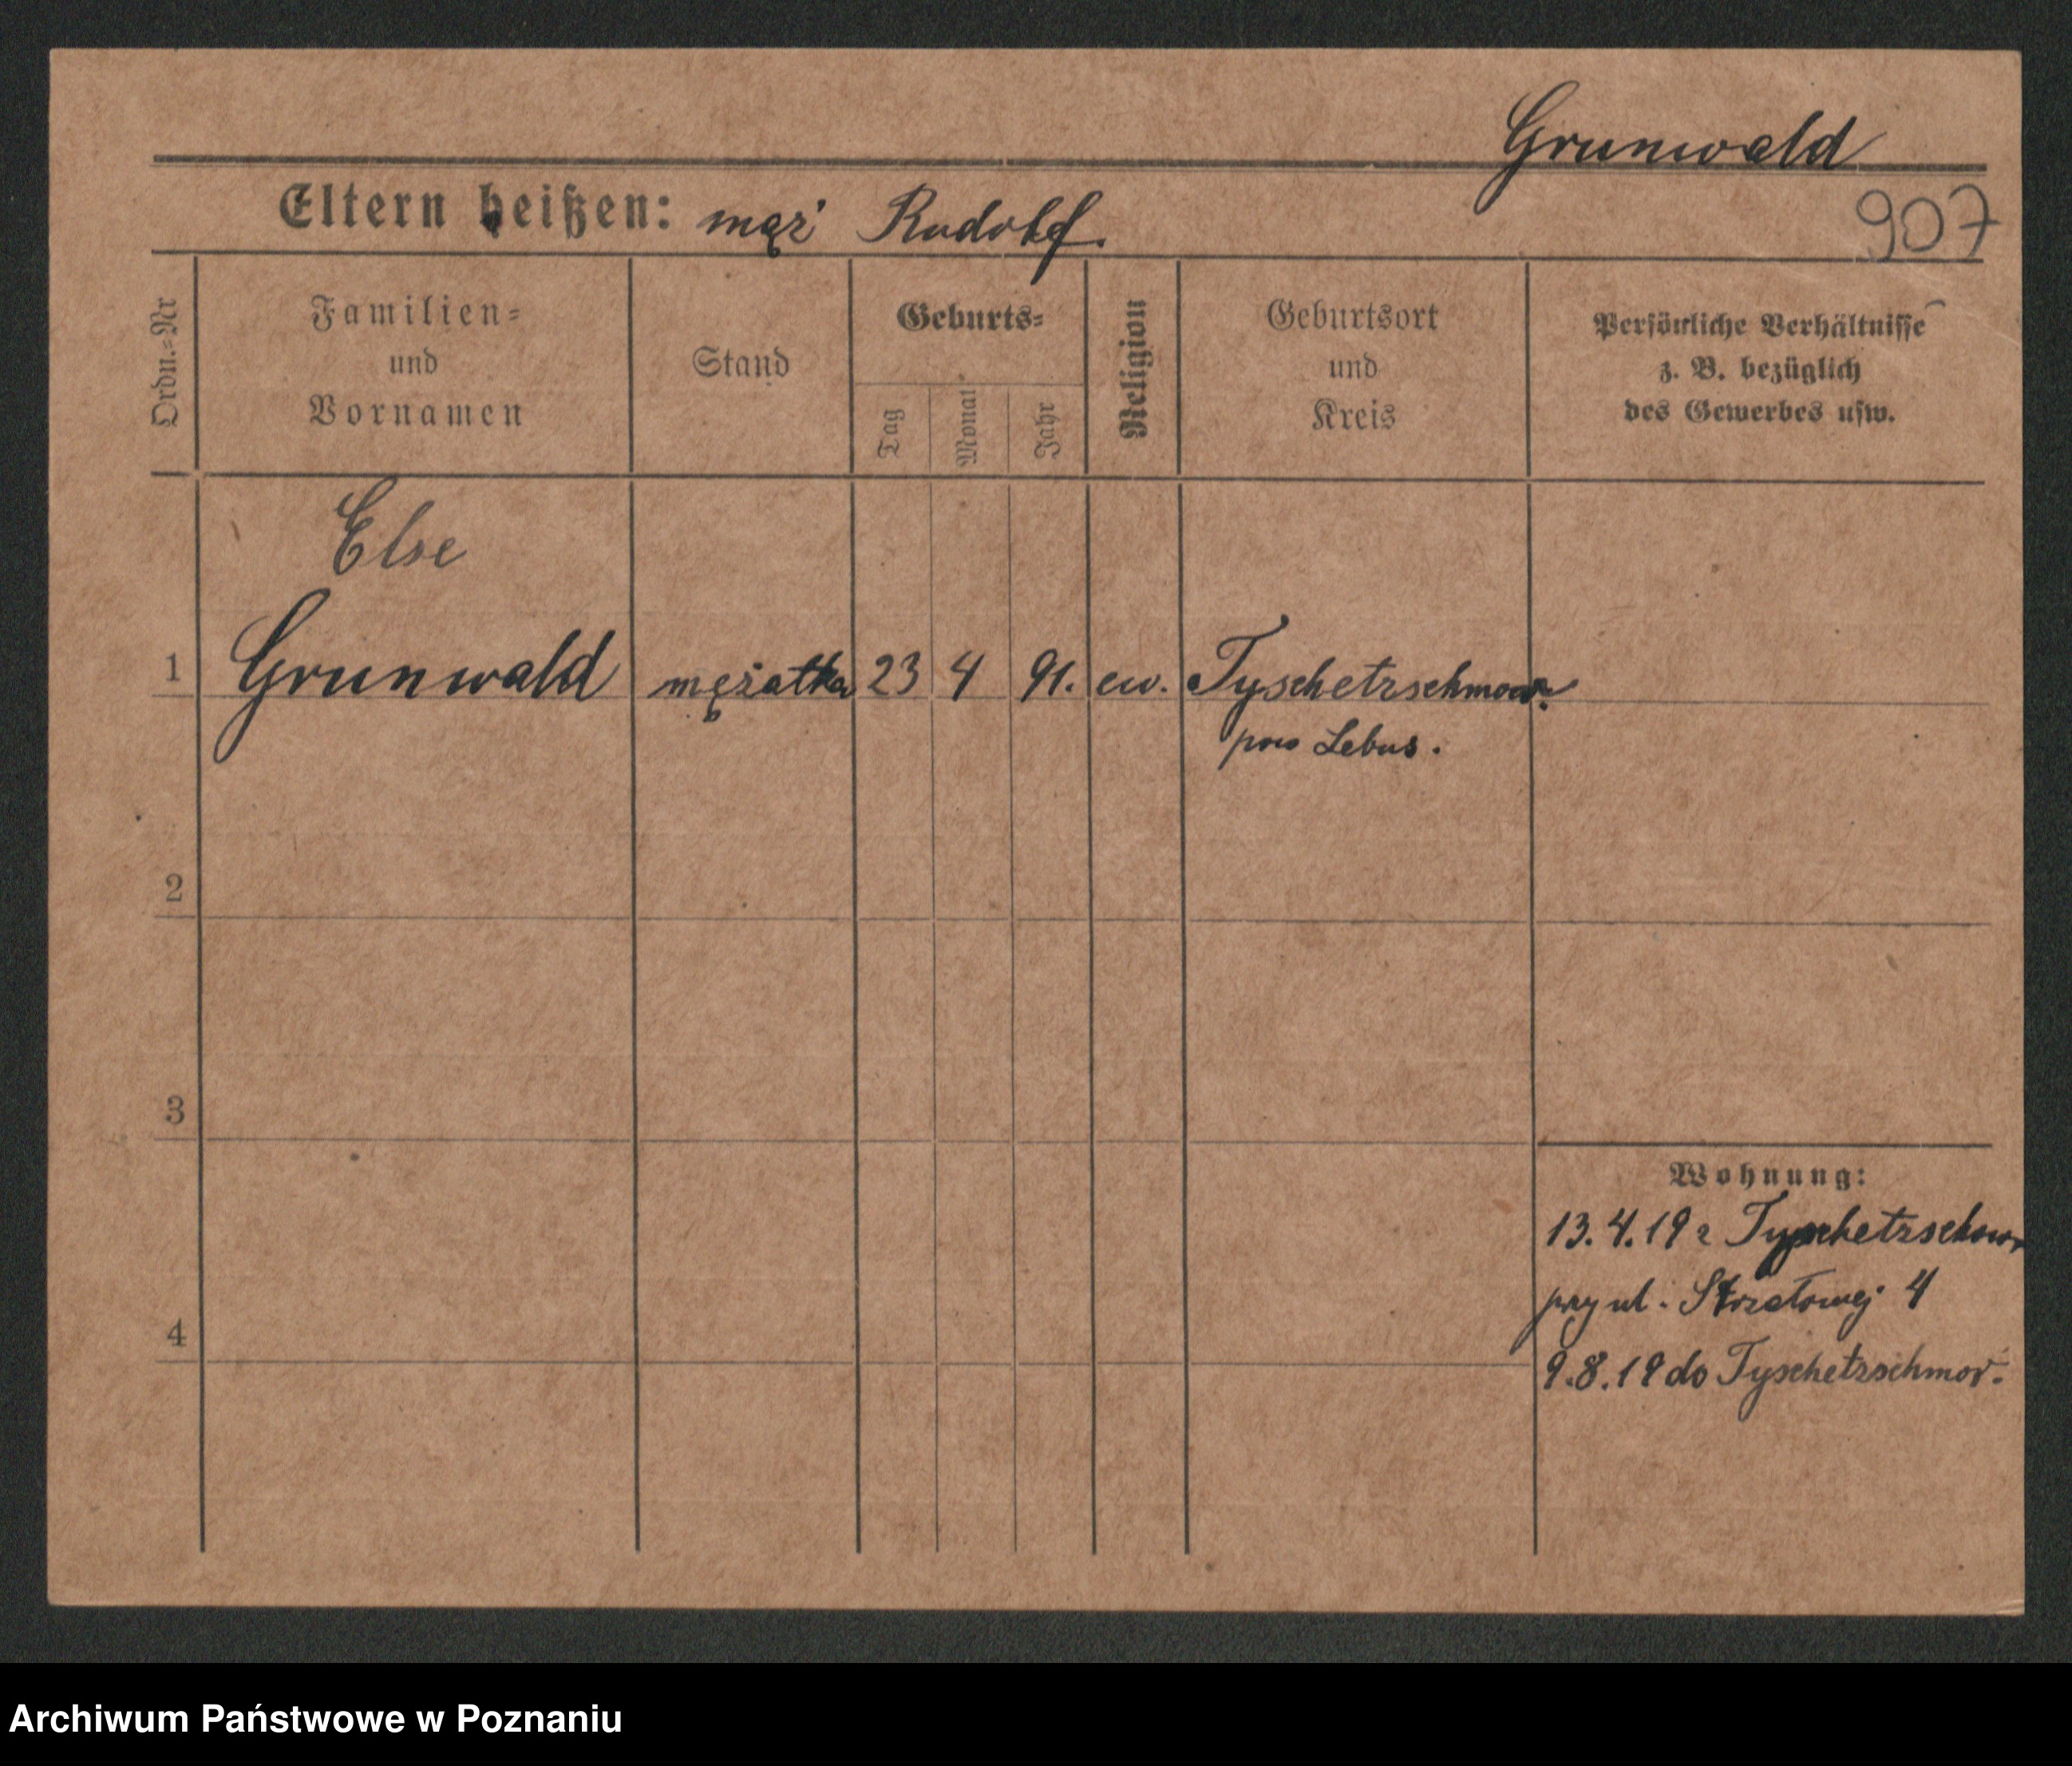 Grunwald
Eltern heißen: mąż Rudolf.
907
Ordn.=Nr
Familien=
und
Vornamen
Stand
Geburts=
Tag
Monat
Jahr
Religion
Geburtsort
und
Kreis
Persönliche Verhältnisse
z. B. bezüglich
des Gewerbes usw.
Else
1 Grunwald mężatka 23 4 91. ew. Tyschetzschnow.
pow Lebus.
2
3
4
Wohnung:
13.4.19 z Tyschetzschow
przy ul. Strzałowej 4
9.8.19 do Tyschetzschnov.